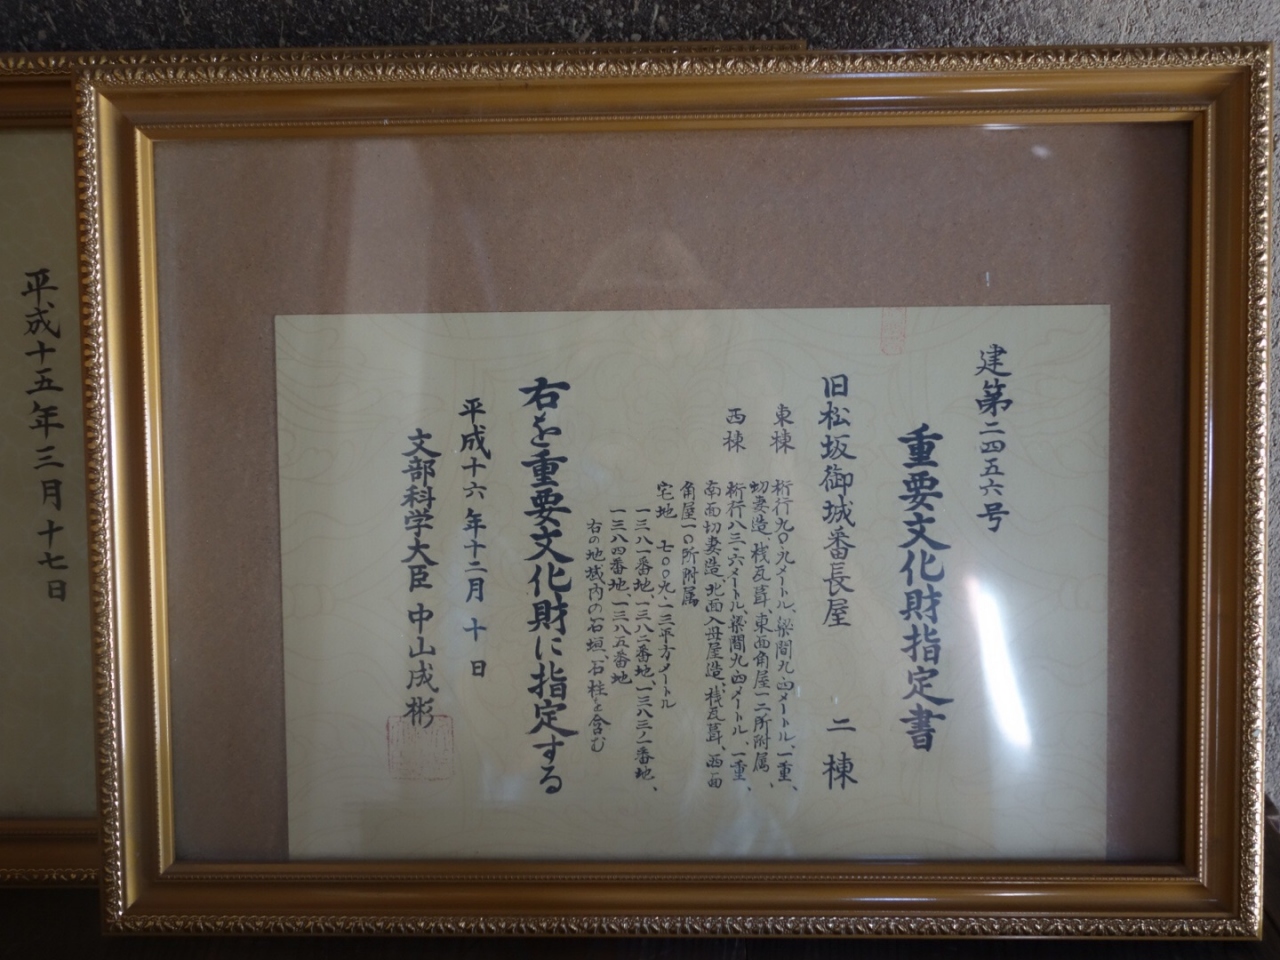 建第二四五六号
重要文化財指定書
旧松坂御城番長屋 二棟
東棟 桁行九〇・九メートル、梁間九・四メートル、一重、
切妻造、桟瓦葺、東西角屋一二所附属、
西棟 桁行八三・六メートル、梁間九・四メートル、一重、
南面切妻造、北面入母屋造、桟瓦葺、西面
角屋一〇所附属
宅地 七〇〇九・一三平方メートル
一三八一番地、一三八二番地、一三八三ノ一番地、
一三八四番地、一三八五番地
右の地域内の石垣、石柱を含む
右を重要文化財に指定する
平成十六年十二月十日
文部科学大臣 中山成彬
平成十五年三月十七日